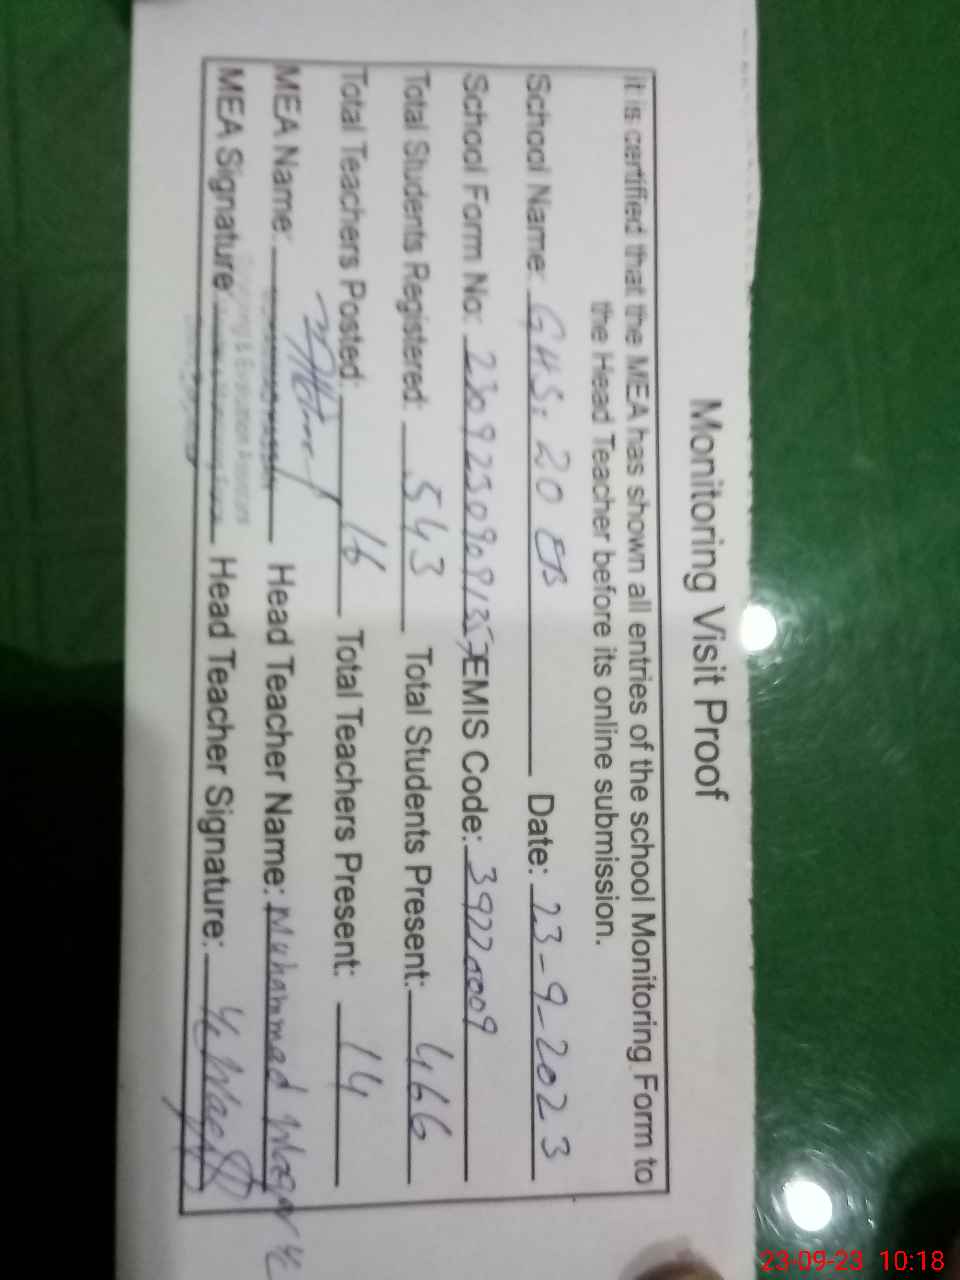 Monitoring Visit Proof
it is certified that the MEA has shown all entries of the school Monitoring Form to
the Head Teacher before its online submission.
School Name: GHS. 20 Date: 23-9-2023
School Form No: EMIS Code: 39220009
Total Students Registered: 543 Total Students Present: 466
Total Teachers Posted: 16 Total Teachers Present: 14
MEA Name: Head Teacher Name: Muhammad Waqar
MEA Signature: Head Teacher Signature:
23-09-23 10:18